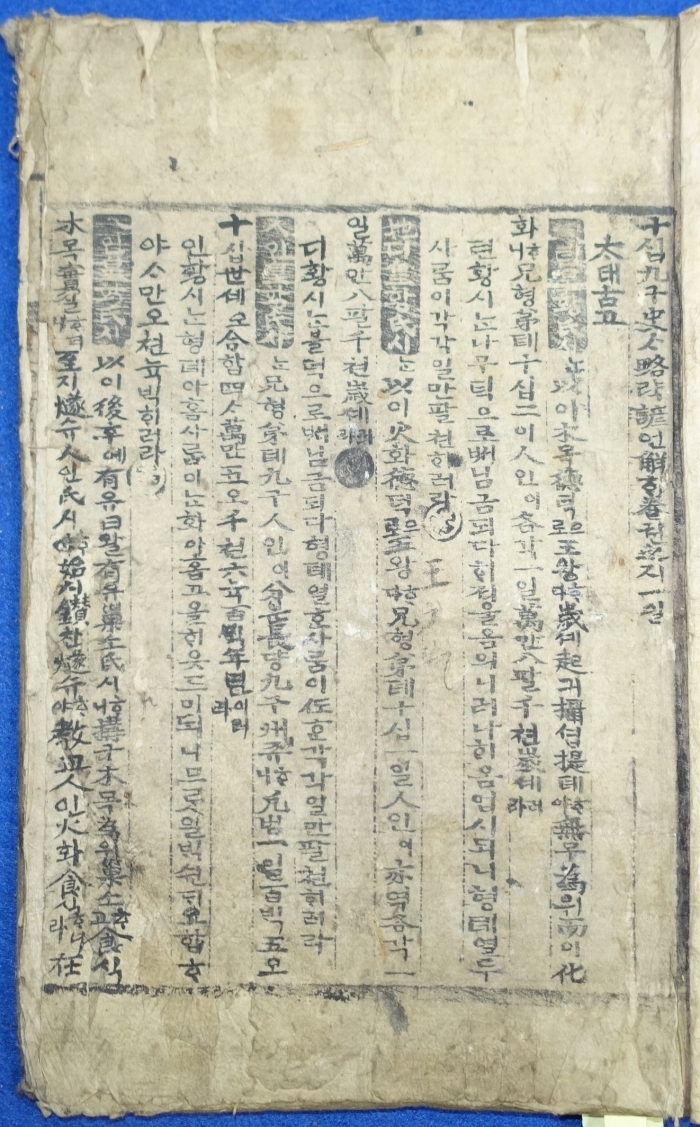 十십九구史ᄉ略략諺언解ᄒᆡ卷권之지一일
太태古고
天텬皇황氏시ᄂᆞᆫ以이木목德덕으로王왕ᄒᆞ야歲셰起긔攝셥提뎨ᄒᆞ야無무爲위而이化
화ᄒᆞ니兄형弟뎨十십二이人인이各각一일萬만八팔千쳔歲셰러라
텬황시ᄂᆞᆫ나무덕으로ᄡᅥ님금되다 형뎨열두
사ᄅᆞᆷ이각각일만팔쳔ᄒᆡ러라
地디皇황氏시ᄂᆞᆫ以이火화德덕으로王왕ᄒᆞ니兄형弟뎨十십一일人인이亦역各각一
일萬만八팔千쳔歲셰러라
디황시ᄂᆞᆫ불덕으로ᄡᅥ님금되다형뎨열ᄒᆞᆫ사ᄅᆞᆷ이ᄯᅩᄒᆞᆫ각각일만팔쳔ᄒᆡ러라
人인皇황氏시ᄂᆞᆫ兄형弟뎨九구人인이分분長댱九구州쥬ᄒᆞ니凡범一일百ᄇᆡᆨ五오
十십世셰오合합四ᄉ萬만五오千쳔六뉵百ᄇᆡᆨ年년이러라
인황시ᄂᆞᆫ형뎨아홉사ᄅᆞᆷ이ᄂᆞᆫ화아홉고을ᄒᆡ웃드미되니므릇일ᄇᆡᆨ쉰ᄃᆡ오합ᄒᆞ
야ᄉ만오쳔뉵ᄇᆡᆨᄒᆡ러라
人인皇황以이後후에有유曰왈有유巢소氏시ᄒᆞ니構구木목爲위巢소ᄒᆞ고食식
木목實실ᄒᆞ더니至지燧슈人인氏시ᄒᆞ야始시鑽찬燧슈ᄒᆞ야敎교人인火화食식ᄒᆞ니라在